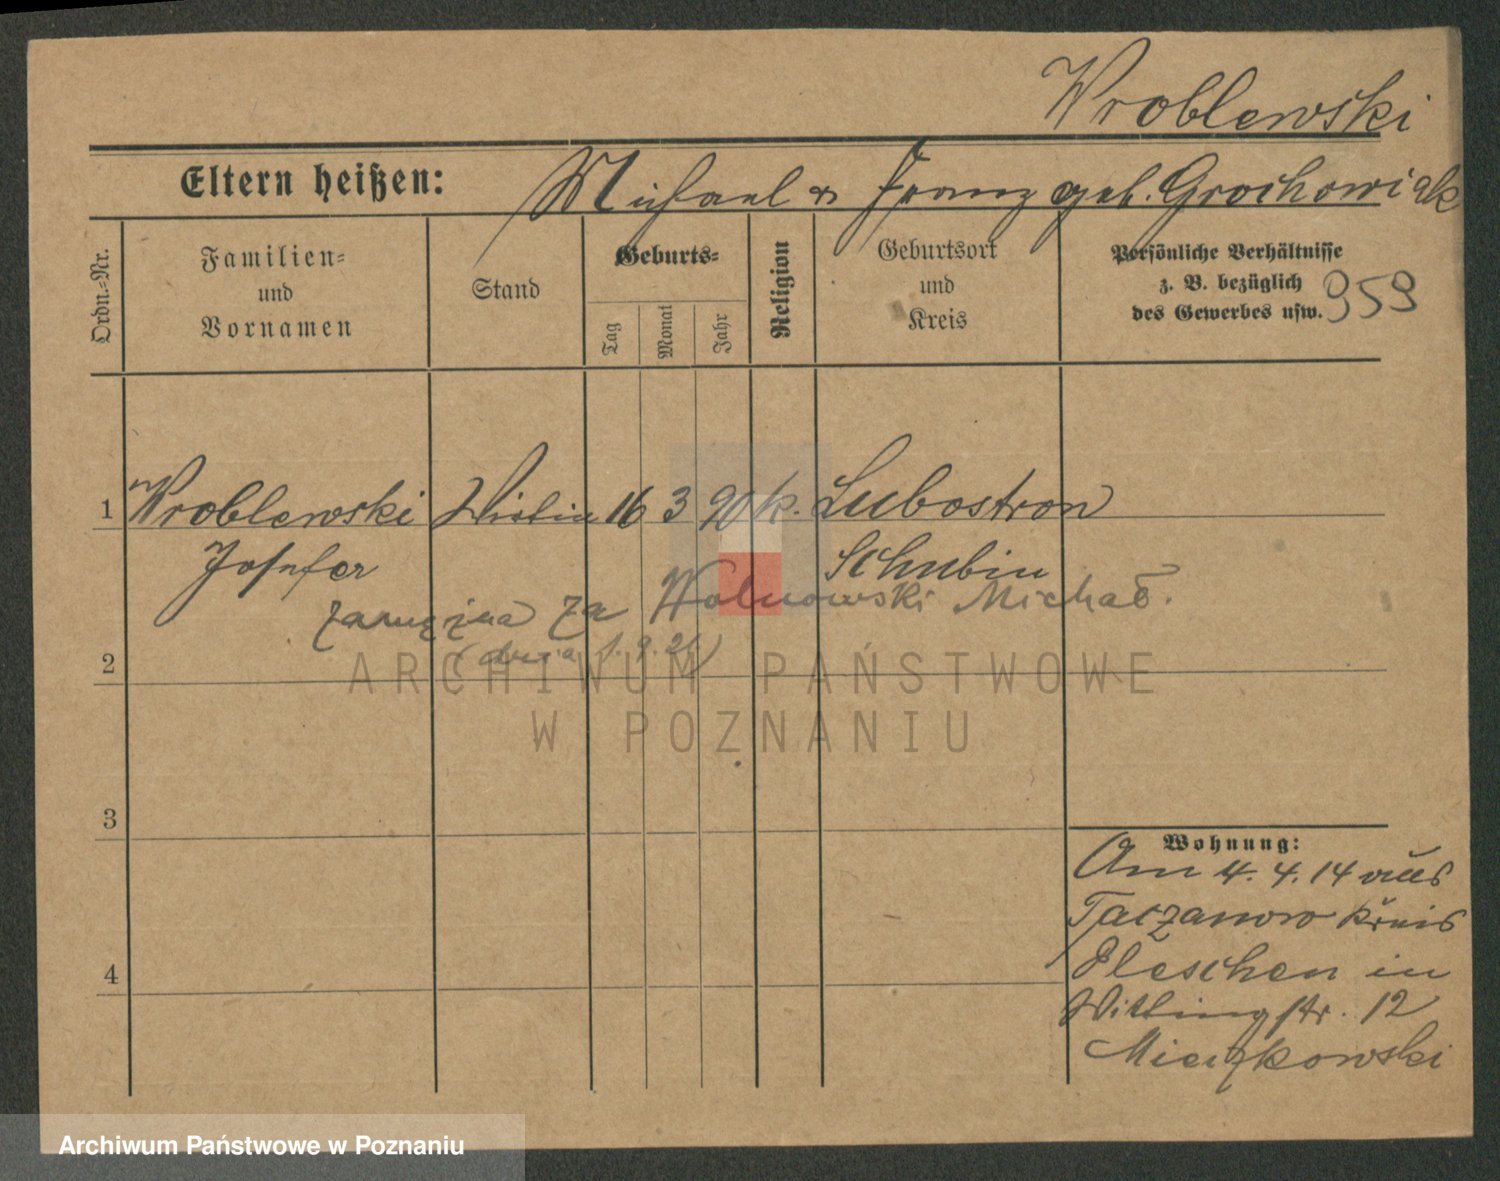 Wroblewski
Eltern heißen: Michael & Franz geb. Grochowiak
Ordn.-Nr.
Familien-
und
Vornamen
Stand
Geburts-
Tag
Monat
Jahr
Religion
Geburtsort
und
Kreis
Persönliche Verhältnisse
z. B. bezüglich
des Gewerbes usw.
959
1 Wroblewski 16 3 90 k. Lubostron
Josefa Schubin
zamężna za Wolnowski Michał.
(dnia 1. 9. 21)
2
3
4
Wohnung:
Am 4. 4. 14 aus
Taczanowo Kreis
Pleschen in
Wittingstr. 12
Mieczkowski
ARCHIWUM PAŃSTWOWE
W POZNANIU
Archiwum Państwowe w Poznaniu